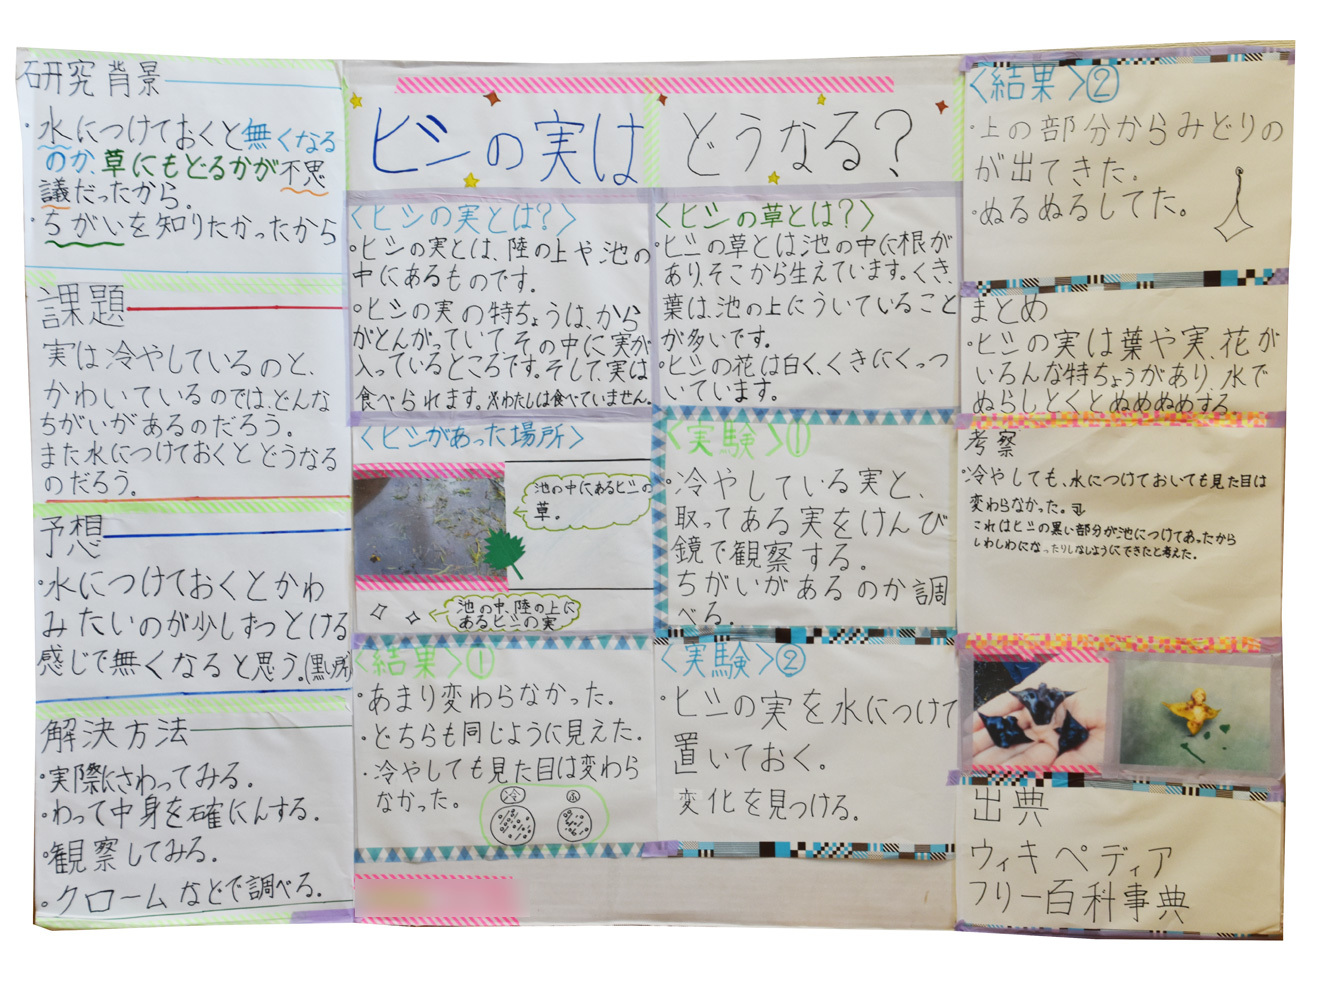 研究背景
・水につけておくと無くなる
のか、草にもどるかが不思
議だったから。
・ちがいを知りたかったから
課題
実は冷やしているのと、
かわいているのでは、どんな
ちがいがあるのだろう。
また水につけておくとどうなる
のだろう。
予想
・水につけておくとかわ
みたいのが少しずっとける
感じで無くなると思う。(黒い所)
解決方法
・実際にさわってみる。
・わって中身を確にんする。
・観察してみる。
・クロームなどで調べる。
ヒシの実は どうなる?
〈ヒシの実とは?〉
・ヒシの実とは、陸の上や池の
中にあるものです。
・ヒシの実の特ちょうは、から
がとんがっていてその中に実が
入っているところです。そして、実は
食べられます。※わたしは食べていません。
〈ヒシがあった場所〉
池の中にあるヒシの
草。
池の中、陸の上に
あるヒシの実
〈結果〉①
・あまり変わらなかった。
・どちらも同じように見えた。
・冷やしても見た目は変わら
なかった。
冷
〈ヒシの草とは?〉
・ヒシの草とは池の中に根が
あり、そこから生えています。くき、
葉は、池の上にういていること
が多いです。
・ヒシの花は白く、くきにくっつ
いています。
〈実験〉①
・冷やしている実と、
取ってある実をけんび
鏡で観察する。
ちがいがあるのか調
べる。
〈実験〉②
・ヒシの実を水につけて
置いておく。
変化を見つける。
〈結果〉②
・上の部分からみどりの
が出てきた。
・ぬるぬるしてた。
まとめ
・ヒシの実は葉や実、花が
いろんな特ちょうがあり、水で
ぬらしとくとぬめぬめする。
考察
・冷やしても、水につけておいても見た目は
変わらなかった。
これはヒシの黒い部分が池につけてあったから
しわしわになったりしなしようにできたと考えた。
出典
ウィキペディア
フリー百科事典